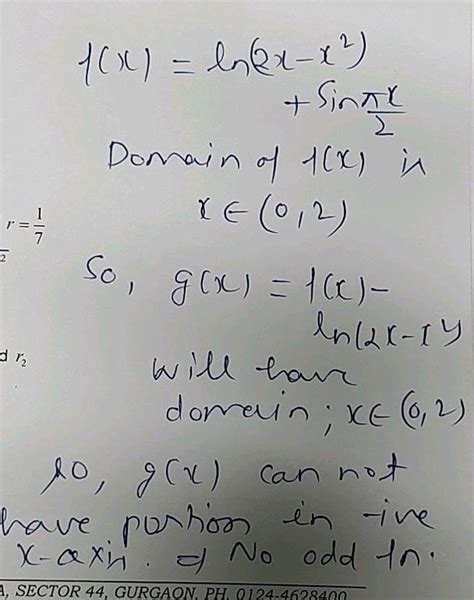 f(x) = ln(2x-x²)
+ Sin πx/2
Domain of f(x) is
x ∈ (0,2)
r = 1/7
2
So, g(x) = f(x) -
ln(2x-x²)
d r₂
will have
domain; x ∈ (0,2)
so, g(x) can not
have portion in -ive
x-axis. ⇒ No odd fn.
A, SECTOR 44, GURGAON, PH. 0124-4628400